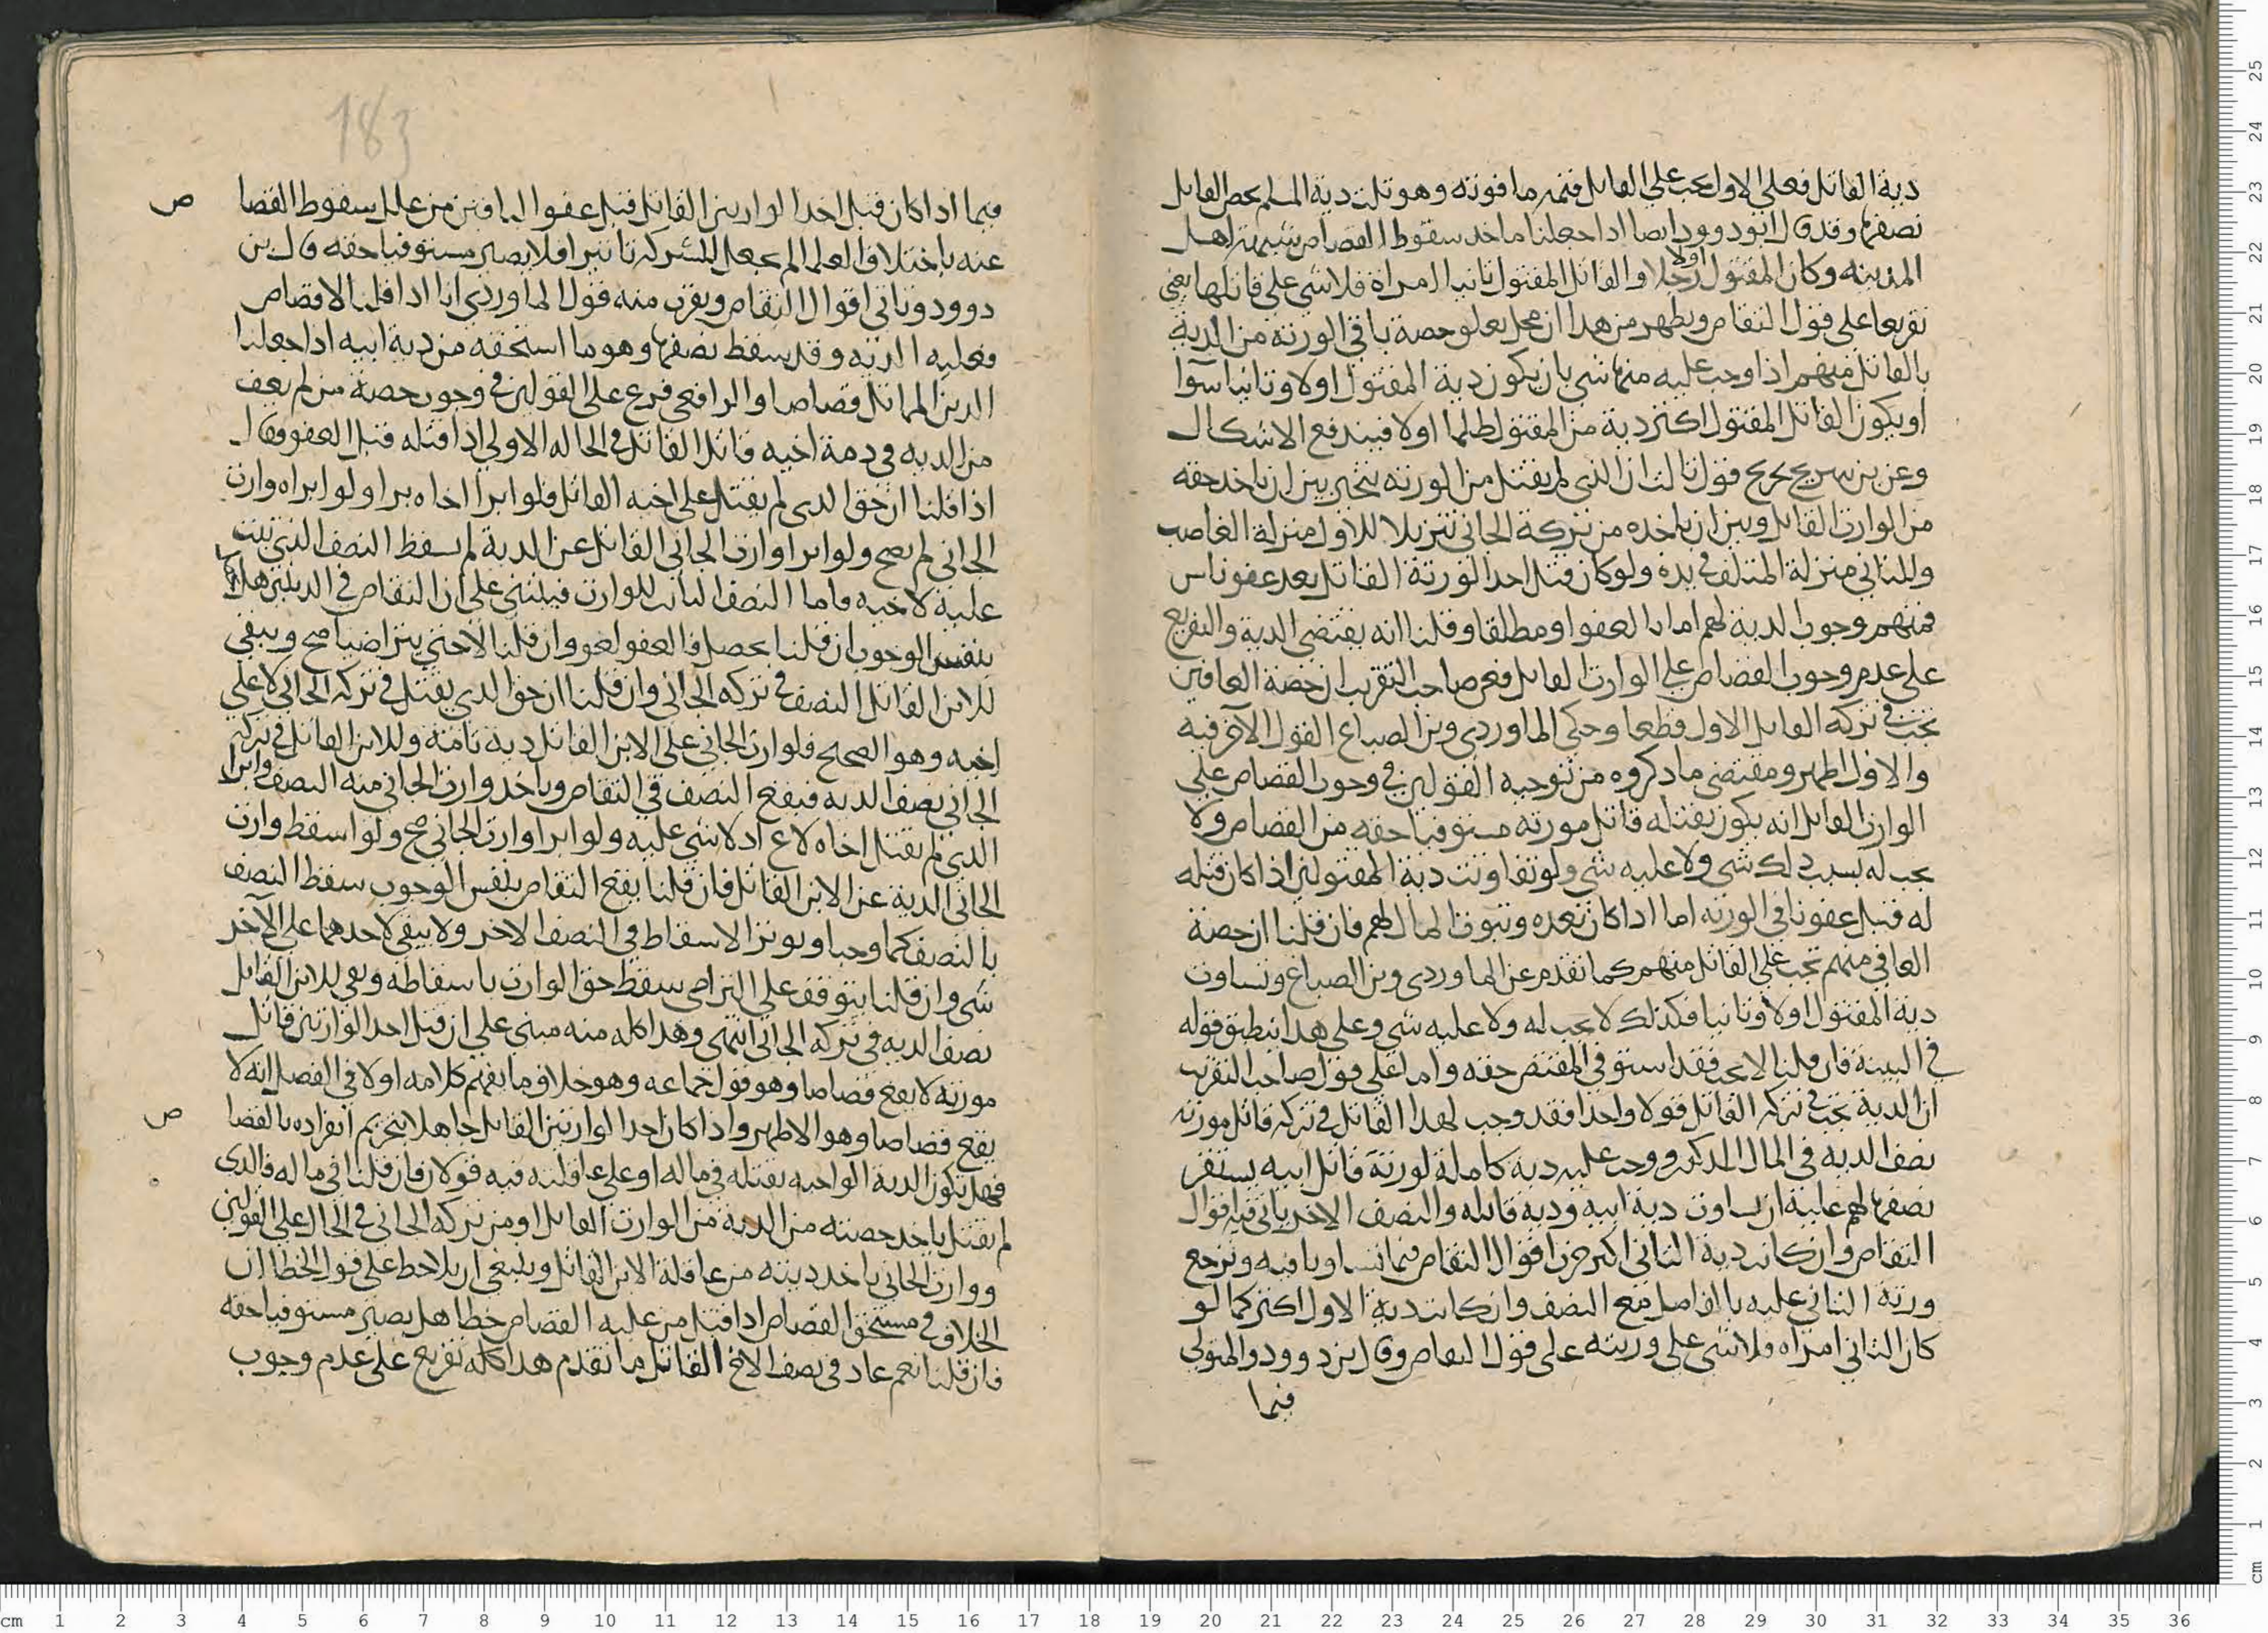 دية القاتل فعلى الاول يجب على القاتل قيمة ما فوته وهو ثلث دية المسلم يخص القاتل
نصفها وقد قال ابو داوود ايضا اذا جعلنا ماخذ سقوط القصاص شبهة اهل
المدينه وكان المقتول اولا رجلا والقاتل المقتول ثانيا امراة فلا شي على قاتلها يعني
تفريعا على قول التقاص ويظهر من هذا ان محل تعلق حصة باقي الورثة من الدية
بالقاتل منهم اذا وجب عليه منها شي بان يكون دية المقتول اولا وثانيا سوا
او يكون القاتل المقتول اكثر دية من المقتول ظلما اولا فيندفع الاشكال
وعن بن سريج تخريج قول ثالث ان الذي لم يقتل من الورثه يتخير بين ان ياخذ حقه
من الوارث القاتل وبين ان ياخذه من تركة الجاني تنزيلا للاول منزلة الغاصب
وللثاني منزلة المتلف في يده ولو كان قتل احد الورثة القاتل بعد عفو ناس
منهم وجوب الدية لهم اما بالعفو او مطلقا وقلنا انه يقتضي الدية والتفريع
على عدم وجوب القصاص على الوارث القاتل فعن صاحب التقريب ان حصة العافين
تجب في تركه القاتل الاول قطعا وحكى الماوردي وبن الصباغ القول الآخر فيه
والاول اظهر ومقتضى ما ذكروه من توجيه القولين في وجوب القصاص على
الوارث القاتل انه يكون بقتله قاتل مورثه مستوفيا حقه من القصاص ولا
يجب له بسبب ذلك شي ولا عليه شي ولو تفاوتت دية المقتولين اذا كان قتله
له قبل عفو باقي الورثه اما اذا كان بعده وثبوت المال لهم فان قلنا ان حصة
العافي منهم تجب على القاتل منهم كما تقدم عن الماوردي وبن الصباغ وتساوت
دية المقتول اولا وثانيا فكذلك لا يجب له ولا عليه شي وعلى هذا ينطبق قوله
في البينة فان قلنا لا يجب فقد استوفى المقتص حقه واما على قول صاحب التقريب
ان الدية تجب في تركه القاتل قولا واحدا فقد وجب لهذا القاتل في تركه قاتل مورثه
نصف الديه في المال المذكور ووجب عليه دية كاملة لورثة قاتل ابيه يستقر
نصفها لهم عليه ان تساوت دية ابيه ودية قاتله والنصف الاخر ياتي فيه اقوال
التقاص وان كانت دية الثاني اكبر جزت اقوال التقاص فيما تساويا فيه وترجع
ورثة الثاني عليه بالفاصل مع النصف وان كانت دية الاول اكثر كما لو
كان الثاني امراه فلا شي على ورثته على قول التقاص وقال بن داوود والمتولي
فيما
فيما اذا كان قتل احد الوارثين القاتل قبل عفو الباقين من علل سقوط القصا ص
عنه باختلاف العلما لم يجعل للشركه تاثيرا فلا يصير مستوفيا حقه قال بن
داوود وتاتي اقوال التقاص ويقرب منه قول الماوردي انا اذا قلنا لا قصاص
فعليه الدية وقد سقط نصفها وهو ما استحقه من دية ابيه اذا جعلنا
الدين المماثل قصاصا والرافعي فرع على القولين في وجوب حصة من لم يعف
من الديه في ذمة اخيه قاتل القاتل في الحاله الاولى اذا قتله قبل العفو وقال
اذا قلنا ان حق الذي لم يقتل على اخيه القاتل فلو ابرا اخاه برا ولو ابراه وارث
الجاني لم يصح ولو ابرا وارث الجاني القاتل عن الدية لم يسقط النصف الذي ثبت
عليه لاخيه فاما النصف الثابت للوارث فيبتني على ان التقاص في الدينين هل
بنفس الوجوب ان قلنا يحصل فالعفو لغو وان قلنا لا حتى يتراضيا صح ويبقى
للابن القاتل النصف في تركه الجاني وان قلنا ان حق الذي يقتل في تركه الجاني لا على
اخيه وهو الصحيح فلوارث الجاني على الابن القاتل دية تامة وللابن القاتل في تركه
الجاني نصف الديه فيقع النصف في التقاص وياخذ وارث الجاني منه النصف وابرا
الذي لم يقتل اخاه لاغ اذ لا شي عليه ولو ابرا وارث الجاني صح ولو اسقط وارث
الجاني الدية عن الابن القاتل فان قلنا يقع التقاص بنفس الوجوب سقط النصف
بالنصف كما وجبا ويوثر الاسقاط في النصف الاخر ولا يبقى لاحدهما على الآخر
شي وان قلنا يتوقف على التراضي سقط حق الوارث باسقاطه وبقي للابن القاتل
نصف الديه في تركه الجاني انتهى وهذا كله منه مبني على ان قتل احد الوارثين قاتل
مورثه لا يقع قصاصا وهو قول جماعه وهو خلاف ما يفهم كلامه اولا في الفصل انه لا
يقع قصاصا وهو الاظهر واذا كان احد الوارثين القاتل جاهلا بتحريم انفراده بالقصا ص
فهل تكون الدية الواجبه بقتله في ماله او على عاقلته فيه قولان فان قلنا في ماله فالذي
لم يقتل ياخذ حصته من الدية من الوارث القاتل او من تركه الجاني في الحال على القولين
ووارث الجاني ياخذ ديته من عاقلة الابن القاتل وينبغي ان يلاحظ على قول الخطا ان
الخلاف في مستحق القصاص اذا قتل من عليه القصاص خطا هل يصير مستوفيا حقه
فان قلنا نعم عاد في نصف الاخ القاتل ما تقدم هذا كله تفريع على عدم وجوب